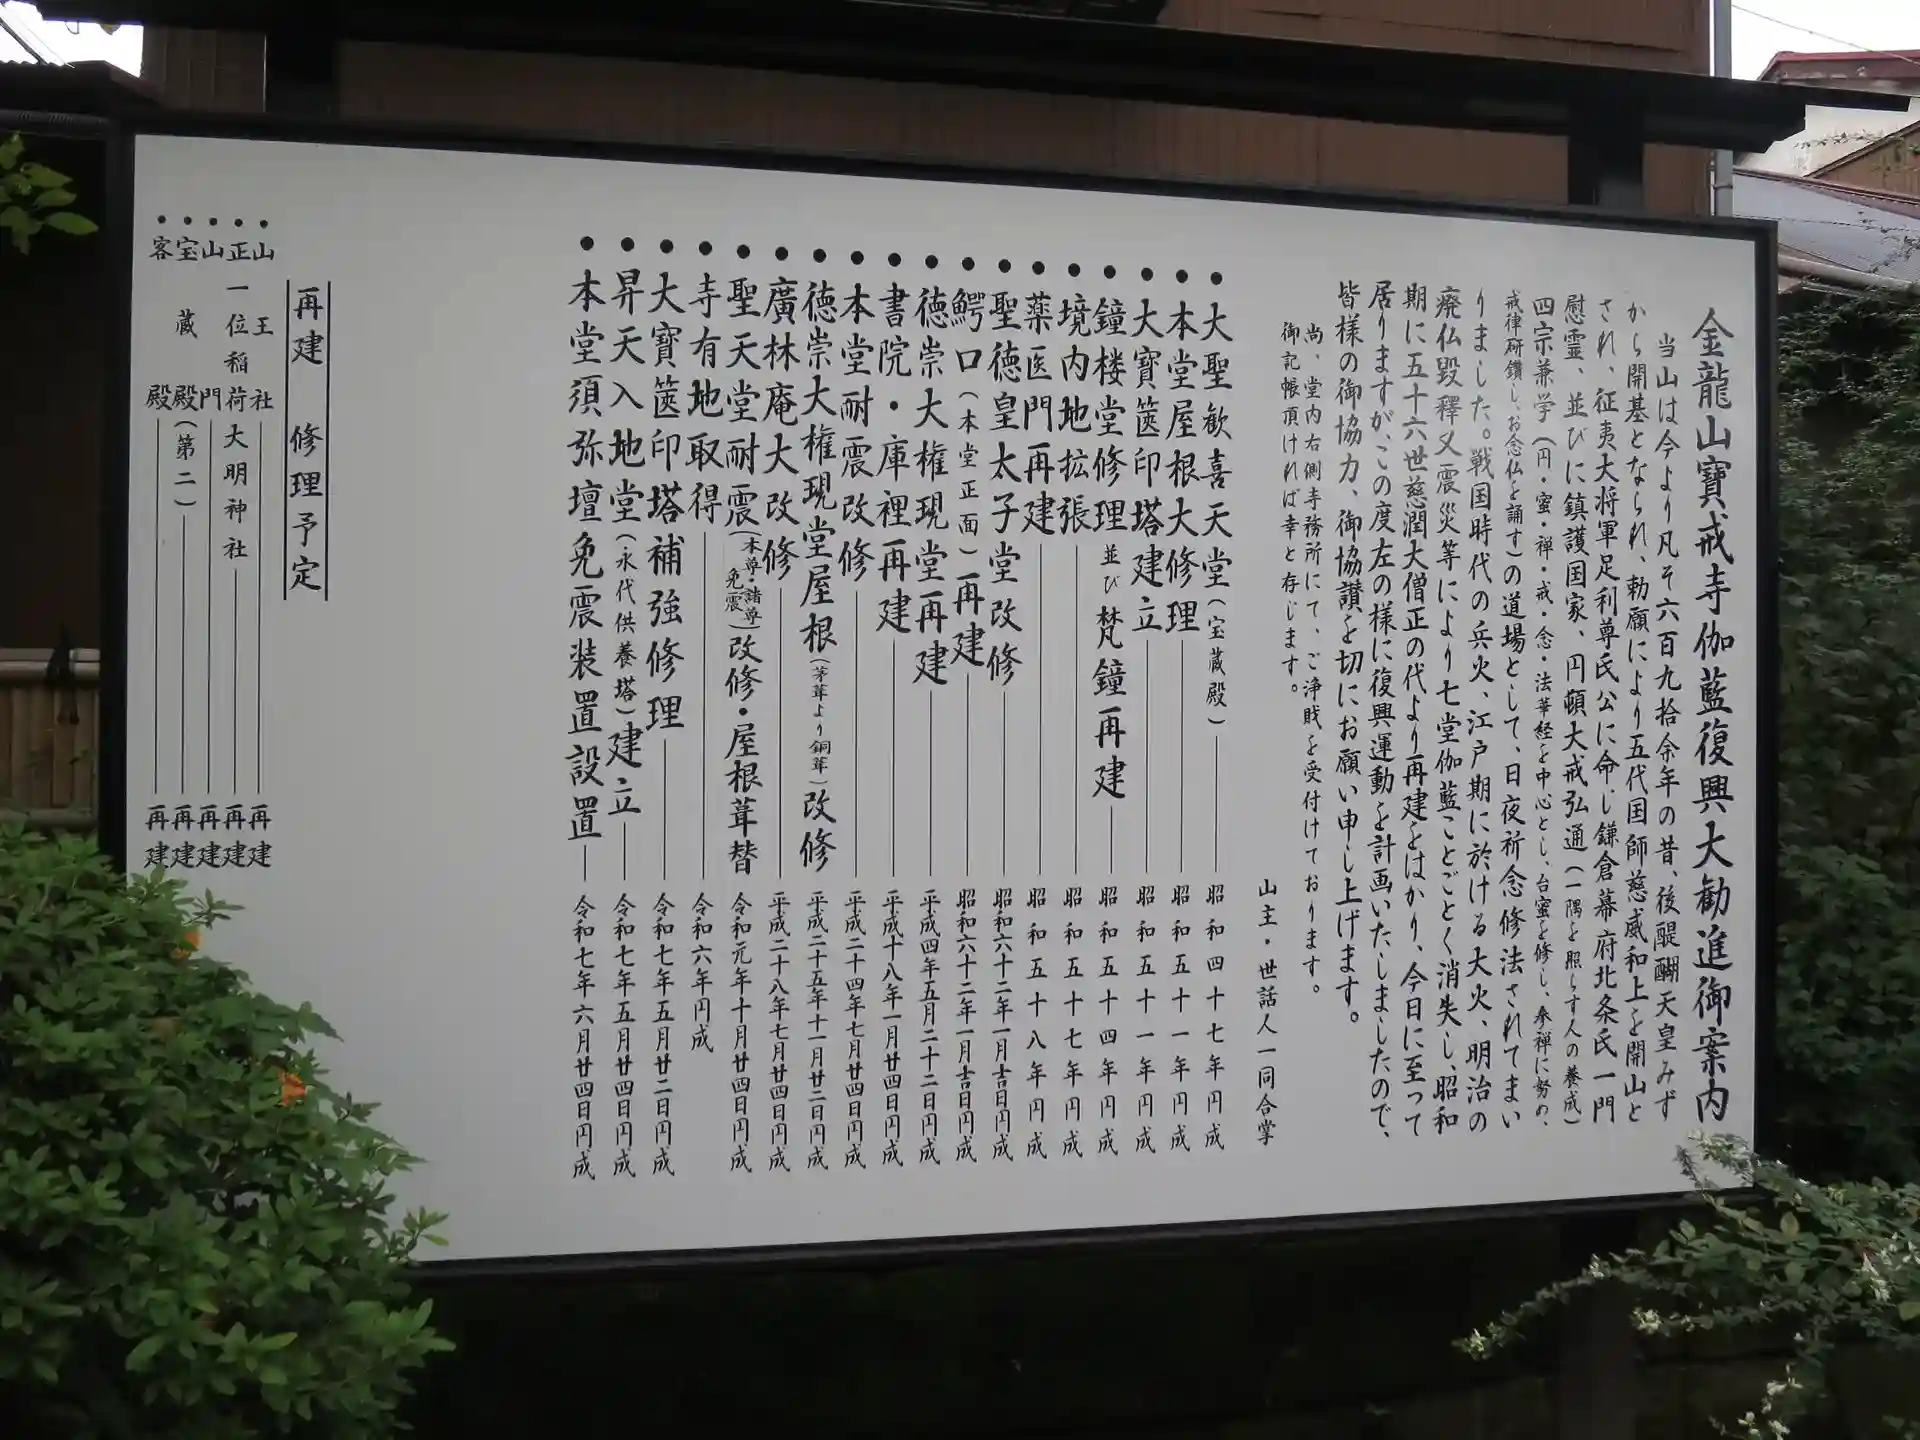 金龍山寶戒寺伽藍復興大勧進御案内
当山は今より凡そ六百九拾余年の昔、後醍醐天皇みず
から開基となられ、勅願により五代国師慈威和上を開山と
され、征夷大将軍足利尊氏公に命じ鎌倉幕府北条氏一門
慰霊、並びに鎮護国家、円頓大戒弘通(一隅を照らす人の養成)
四宗兼学(円・蜜・禅・戒・念・法華経を中心とし、台蜜を修し、参禅に努め、
戒律研鑽し、お念仏を誦す)の道場として、日夜祈念修法されてまい
りました。戦国時代の兵火、江戸期に於ける大火、明治の
廃仏毀釋又震災等により七堂伽藍ことごとく消失し、昭和
期に五十六世慈潤大僧正の代より再建をはかり、今日に至って
居りますが、この度左の様に復興運動を計画いたしましたので、
皆様の御協力、御協讃を切にお願い申し上げます。
尚、堂内右側寺務所にて、ご浄財を受付けております。
御記帳頂ければ幸と存じます。
山主・世話人一同合掌
●大聖歓喜天堂(宝蔵殿)――昭和四十七年円成
●本堂屋根大修理――昭和五十一年円成
●大寶篋印塔建立――昭和五十一年円成
●鐘楼堂修理並び梵鐘再建――昭和五十四年円成
●境内地拡張――昭和五十七年円成
●薬医門再建――昭和五十八年円成
●聖徳皇太子堂改修――昭和六十二年一月吉日円成
●鰐口(本堂正面)再建――昭和六十二年一月吉日円成
●徳崇大権現堂再建――平成四年五月二十二日円成
●書院・庫裡再建――平成十八年一月廿四日円成
●本堂耐震改修――平成二十四年七月廿四日円成
●徳崇大権現堂屋根(茅葺より銅葺)改修――平成二十五年十一月廿二日円成
●廣林庵大改修――平成二十八年七月廿四日円成
●聖天堂耐震(本尊・諸尊免震)改修・屋根葺替――令和元年十月廿四日円成
●寺有地取得――令和六年円成
●大寶篋印塔補強修理――令和七年五月廿二日円成
●昇天入地堂(永代供養塔)建立――令和七年五月廿四日円成
●本堂須弥壇免震装置設置――令和七年六月廿四日円成
再建 修理予定
●山王社――再建
●正一位稲荷大明神社――再建
●山門――再建
●宝蔵殿(第二)――再建
●客殿――再建